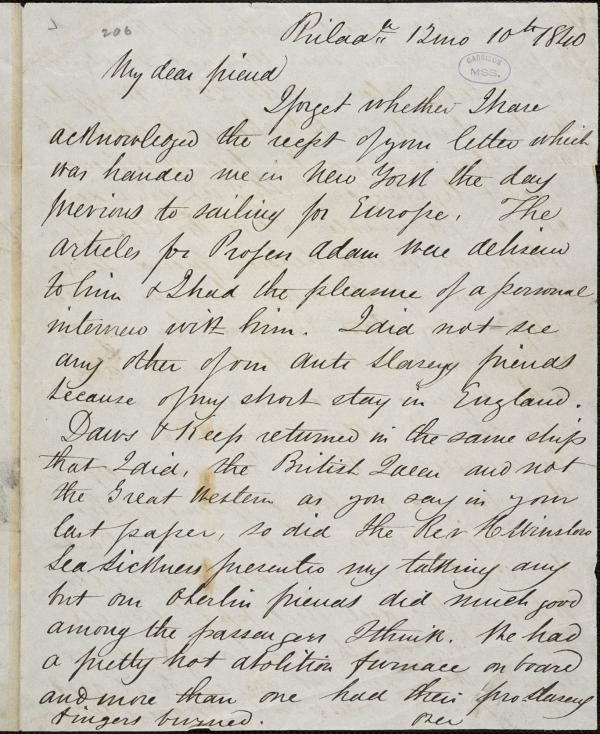 206
Philada 12mo 10th 1840
GARRISON
MSS.
My dear friend
I forget whether I have
acknowledged the recept of your letter which
was handed me in New York the day
previous to sailing for Europe. The
articles for Profesr Adam were deliverd
to him & I had the pleasure of a personal
interview with him. I did not see
any other of our Anti Slavery friends
because of my short stay in England.
Daws & Keep returned in the same ship
that I did, the British Queen and not
the Great Western as you say in your
last paper, so did the Rev H Winslow
Sea Sickness prevented my talking any
but our Oberlin friends did much good
among the passengers I think. We had
a pretty hot abolition furnace on board
and more than one had their pro slavery
fingers burned.
over